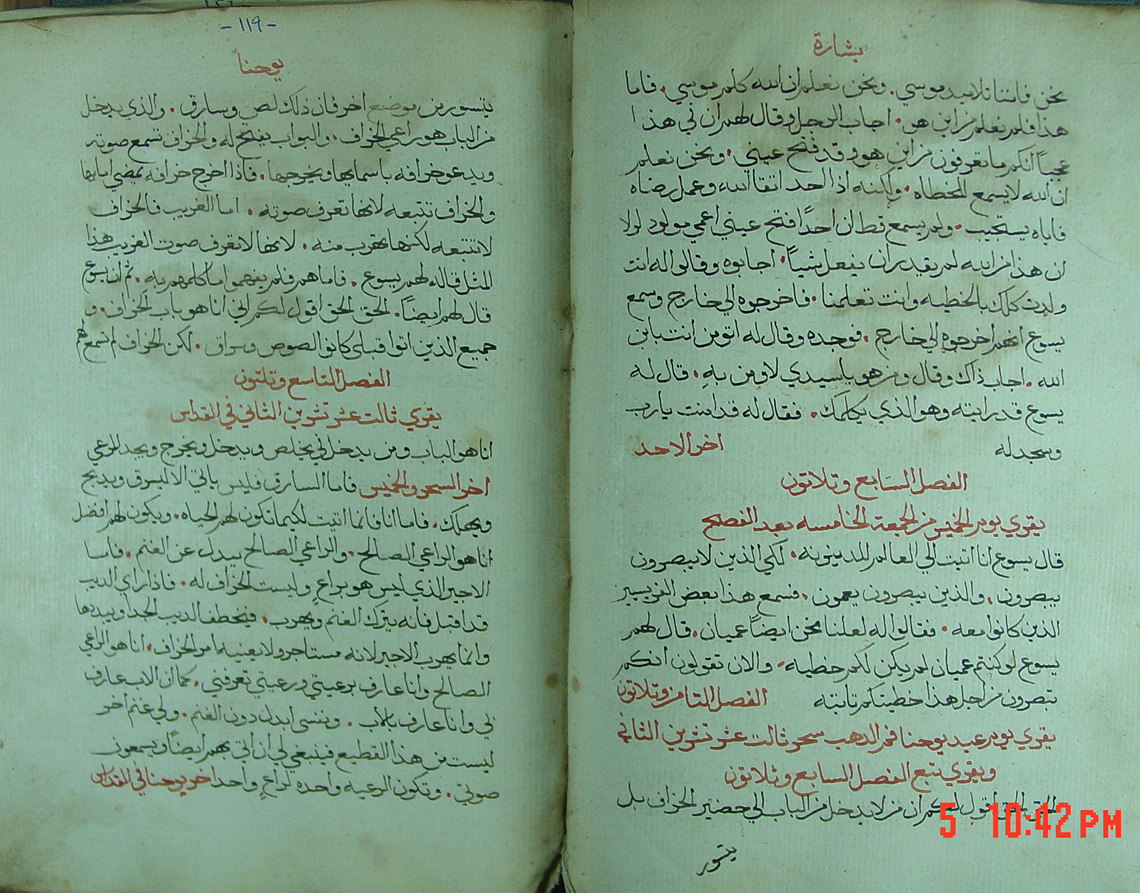 بشارة
نحن فاننا تلاميد موسي. ونحن نعلم ان الله كلم موسي. فاما
هذا فلم نعلم من اين هو. اجاب الرجل وقال لهم ان في هذا
عجباً انكم ما تعرفون من اين هو وقد فتح عيني. ونحن نعلم
ان الله لا يسمع للخطاه. ولكنه اذا احد اتقا الله وعمل رضاه
فاياه يستجيب. ولم يسمع قط ان احداً فتح عيني اعمي مولود لولا
ان هذا من الله لم يقدر ان يفعل شياً. اجابوه وقالوا له انت
ولدت كلك بالخطيه وانت تعلمنا. فاخرجوه الي خارج وسمع
يسوع انهم اخرجوه الي خارج. فوجده وقال له اتومن انت بابن
الله. اجاب ذاك وقال ومن هو يا سيدي لاومن به. قال له
يسوع قد رايته وهو الذي يكلمك. فقال له قد امنت يا رب
وسجد له اخر الاحد
الفصل السابع وتلاتون
يقري يوم الخميس من الجمعة الخامسه بعد الفصح
قال يسوع انا اتيت الي العالم للدينونه. لكي الذين لا يبصرون
يبصرون. والذين يبصرون يعمون. فسمع هذا بعض الفريسيين
الذين كانوا معه. فقالوا له لعلنا نحن ايضاً عميان. قال لهم
يسوع لو كنتم عميان لم يكن لكم خطيه. والان تقولون انكم
تبصرون من اجل هذا خطيتكم تابته الفصل التامن وتلاتون
يقري يوم عيد يوحنا فم الدهب سحر ثالت عشر تشرين الثاني
ويقري تبع الفصل السابع وثلاتون
الحق الحق اقول لكم ان من لا يدخل من الباب الي حضير الخراف بل
يتسور
-١١٩-
يوحنا
يتسور من موضع اخر فان ذلك لص وسارق. والذي يدخل
من الباب هو راعي الخراف. والبواب يفتح له والخراف تسمع صوته
ويدعو خرافه باسمايها ويخرجها. فاذا اخرج خرافه يمضي امامها
والخراف تتبعه لانها تعرف صوته. اما الغريب فالخراف
لا تتبعه لكنها تهرب منه. لانها لا تعرف صوت الغريب هذا
المثل قاله لهم يسوع. فاما هم فلم يفهموا ما كلمهم به. ثم ان يسوع
قال لهم ايضاً. الحق الحق اقول لكم اني انا هو باب الخراف. و
جميع الذين اتوا قبلي كانوا لصوص وسراق. لكن الخراف لم تسمع لهم
الفصل التاسع وتلتون
يقري ثالت عشر تشرين الثاني في القداس
انا هو الباب ومن يدخل في يخلص ويدخل ويخرج ويجد المرعي
اخر السحر والخميس فاما السارق فليس ياتي الا ليسرق ويذبح
ويهلك. فاما انا فانما اتيت لكيما تكون لهم الحياه. ويكون لهم افضل
انا هو الراعي الصالح. والراعي الصالح يبدل عن الغنم. فاما
الاجير الذي ليس هو براعٍ وليست الخراف له. فاذا راي الديب
قد اقبل فانه يترك الغنم ويهرب. فيخطف الديب الجدا ويبددها
وانما يهرب الاجير لانه مستاجر ولا يعنيه امر الخراف. انا هو الراعي
الصالح وانا عارف برعيتي ورعيتي تعرفني. كما ان الاب عارف
لي وانا عارف بالاب. ونفسي ابدل دون الغنم. ولي غنم اخر
ليست من هذا القطيع فينبغي لي ان اتي بهم ايضاً ويسمعون
صوتي. وتكون الرعيه واحده لراعٍ واحد اخر يوحنا في القداس
5 10:42 PM